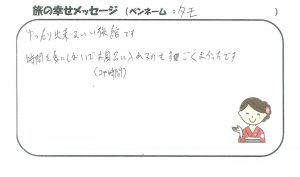 旅の幸せメッセージ (ペンネーム：タモ)
ゆっくり出来るいい旅館です
時間を気にしないでお風呂に入れるのですごくよかったです
(24時間)